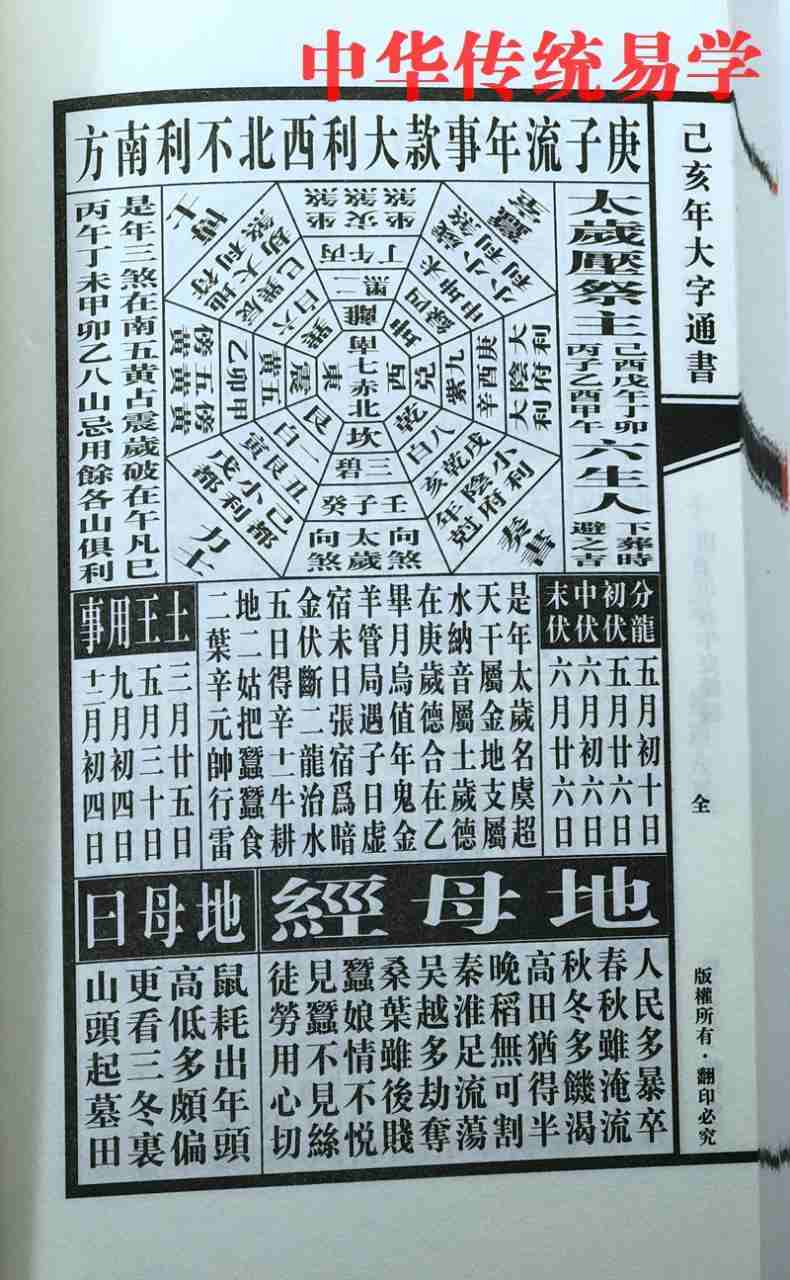 中华传统易学
己亥年大字通書
全
版權所有·翻印必究
庚子流年事款大利西北不利南方
太歲壓祭主
己酉戊午丁卯
丙子乙酉甲午
六生人
下葬時
避之吉
蠶室
小歲煞
小利
申坤未
綠四
坤
坐煞
災煞
坐煞
丁午丙
黑二
離
博士
地符
大利
劫煞
巳巽辰
白六
巽
大利
陰府
大利
辛酉庚
紫九
兌
南七赤北
東
西
傍黄
五黄
傍黄
乙卯甲
黄五
震
奏書
小利
陰府
年尅
亥乾戌
白八
乾
向煞
太歲
向煞
癸子壬
碧三
坎
力士
己都
小利
戊都
寅艮丑
白一
艮
是年三煞在南五黄占震歲破在午凡巳
丙午丁未甲卯乙八山忌用餘各山俱利
分龍
初伏
中伏
末伏
五月初十日
五月廿六日
六月初六日
六月廿六日
是年太歲名虞超
天干屬金地支屬
水納音屬土歲德
在庚歲德合在乙
畢月烏值年鬼金
羊管局遇子日虚
宿未日張宿爲暗
金伏斷二龍治水
五日得辛十二牛耕
地二姑把蠶蠶食
二葉辛元帥行雷
土王用事
三月廿五日
五月三十日
九月初四日
十二月初四日
地母經
人民多暴卒
春秋雖淹流
秋冬多饑渴
高田猶得半
晚稻無可割
秦淮足流蕩
吴越多劫奪
桑葉雖後賤
蠶娘情不悦
見蠶不見絲
徒勞用心切
地母曰
鼠耗出年頭
高低多頗偏
更看三冬裏
山頭起墓田